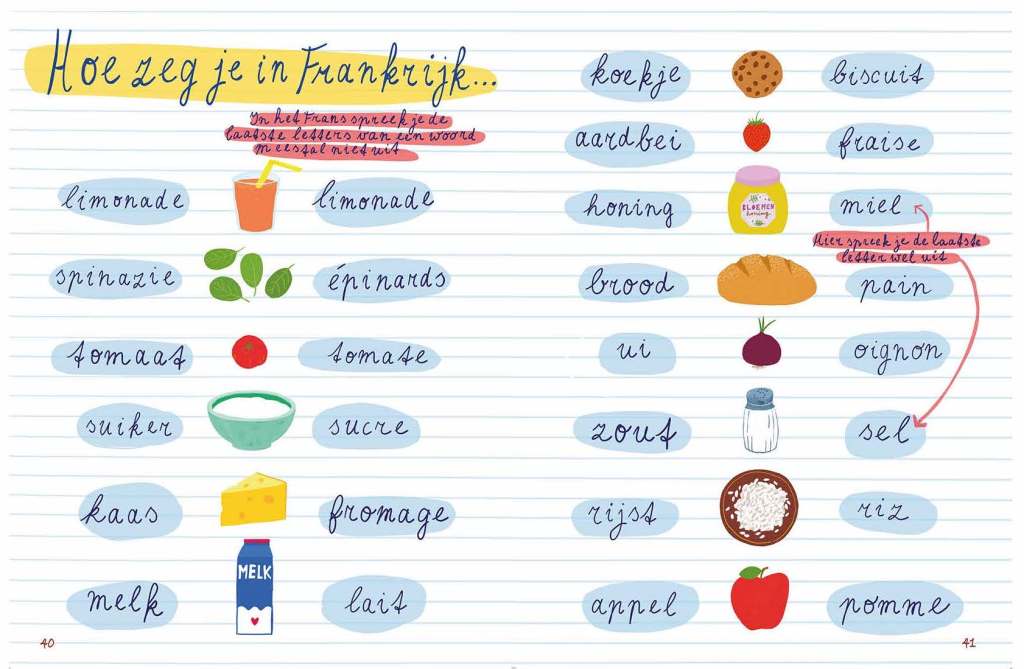 Hoe zeg je in Frankrijk...
In het Frans spreek je de
laatste letters van een woord
meestal niet uit
limonade limonade
spinazie épinards
tomaat tomate
suiker sucre
kaas fromage
MELK
melk lait
40
koekje biscuit
aardbei fraise
BLOEMEN
honing
honing miel
Hier spreek je de laatste
letter wel uit
brood pain
ui oignon
zout sel
rijst riz
appel pomme
41